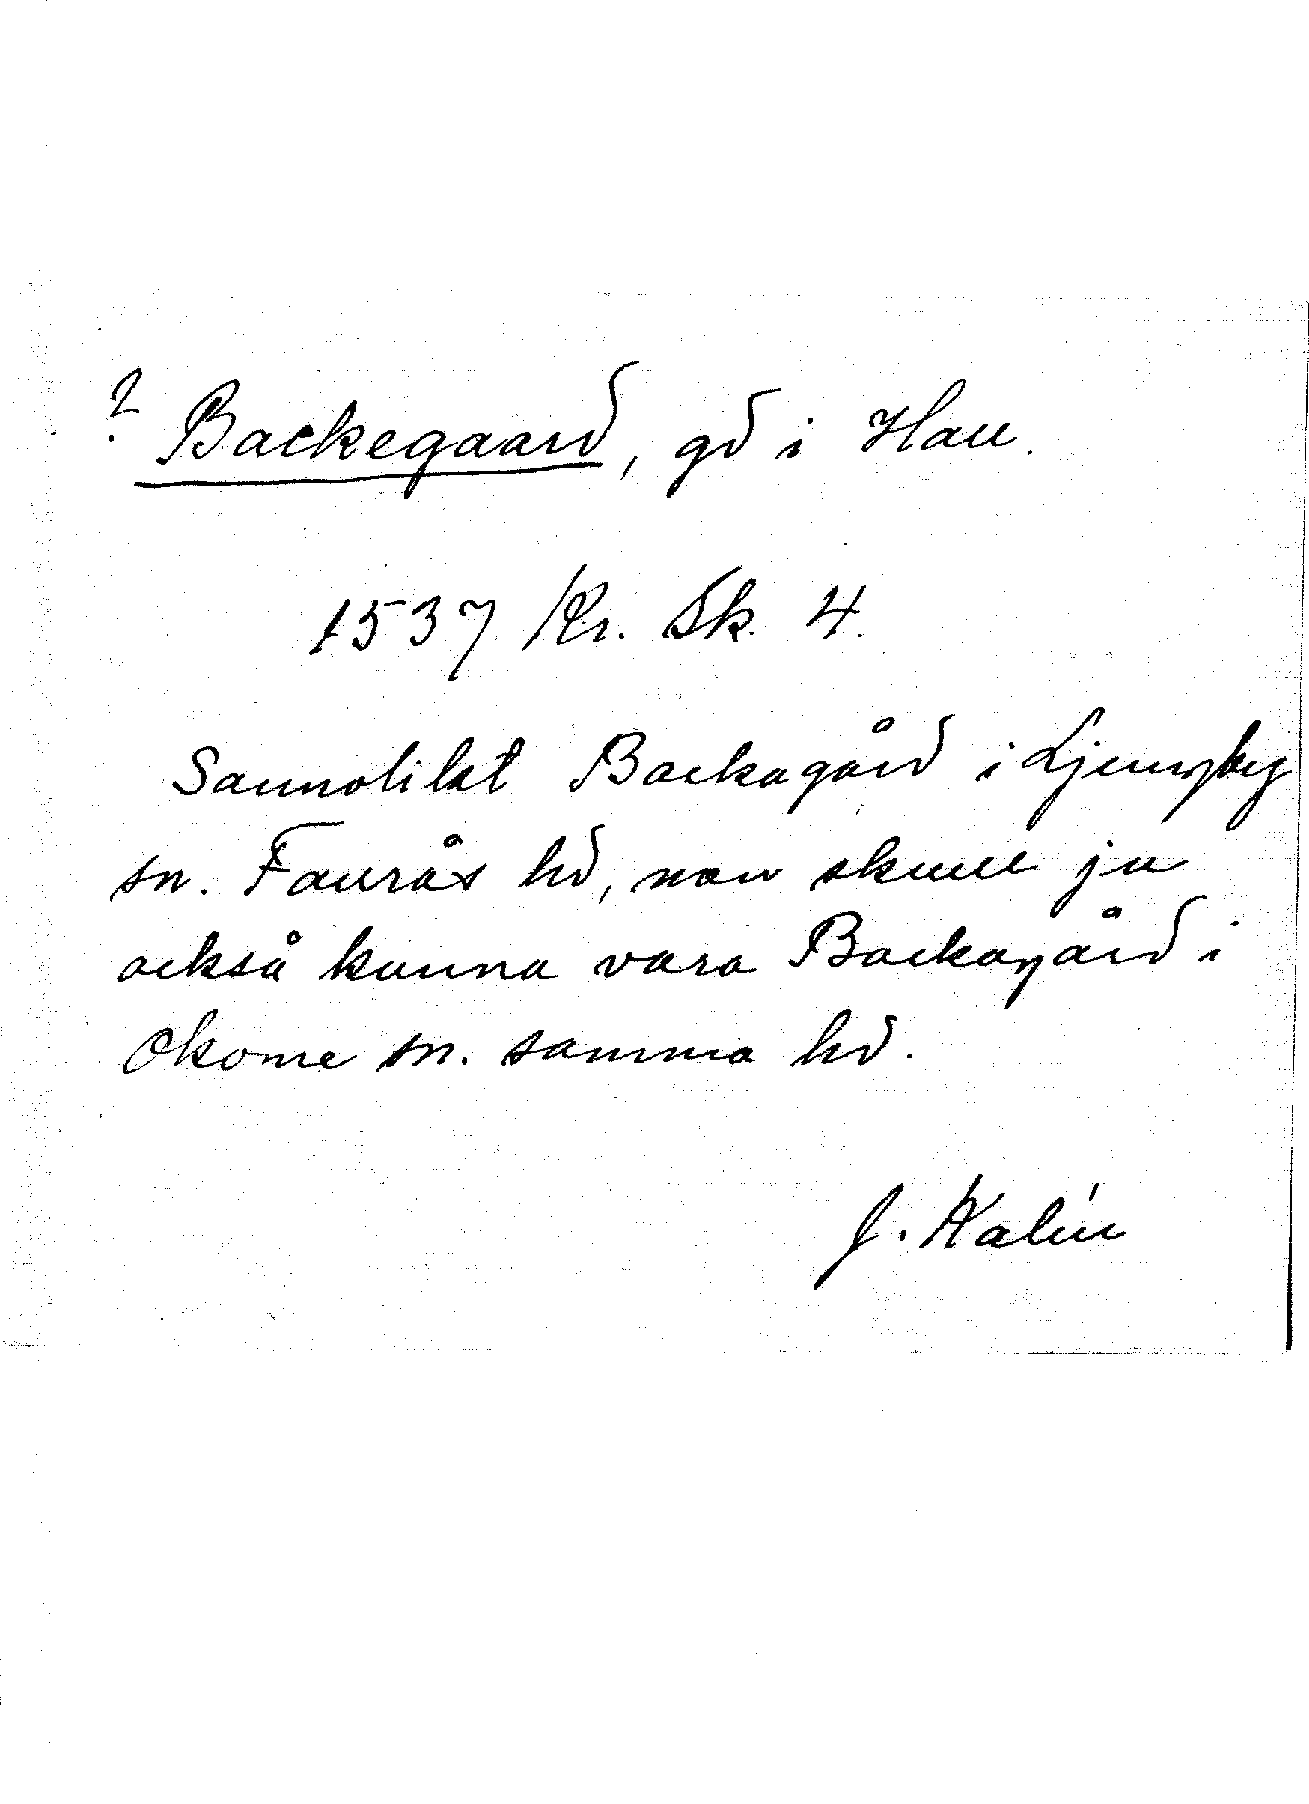 ? Backegaard, gd i Hall.
1537 Kr. Sk. 4.
Sannolikt Backagård i Ljungby
sn. Faurås hd, men skulle ju
också kunna vara Backagård i
Okome sn. samma hd.
J. Kalén